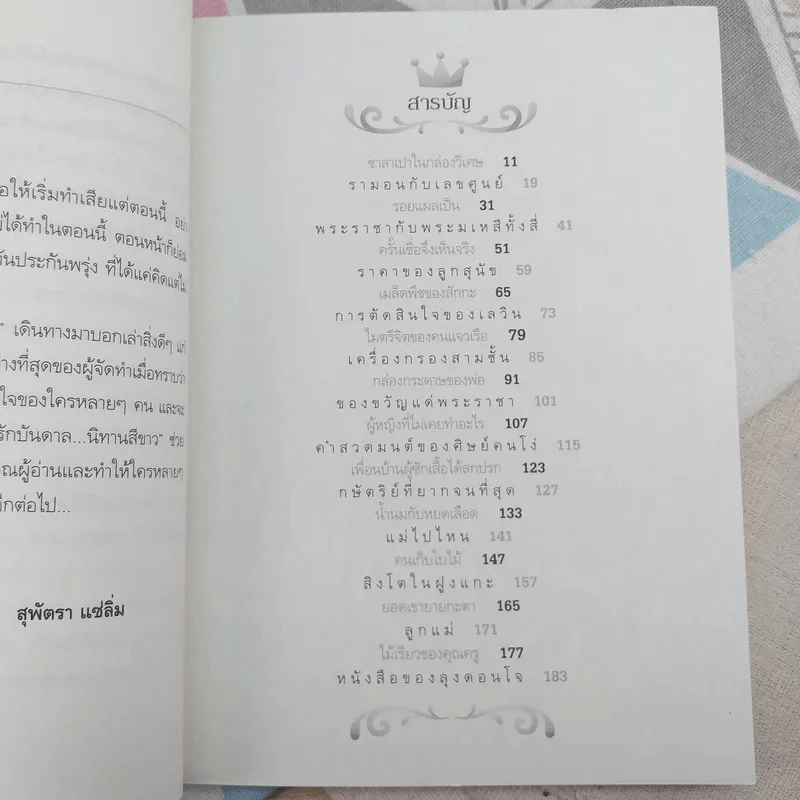 อให้เริ่มทำเสียแต่ตอนนี้ อย่า
ม่ได้ทำในตอนนี้ ตอนหน้าก็ย่อม
วันประกันพรุ่ง ที่ได้แค่คิดแต่ไม่
” เดินทางมาบอกเล่าสิ่งดีๆ แก่
ย่างที่สุดของผู้จัดทำเมื่อทราบว่า
ใจของใครหลายๆ คน และจะ
รักบันดาล...นิทานสีขาว” ช่วย
คุณผู้อ่านและทำให้ใครหลายๆ
อีกต่อไป...
สุพัตรา แซ่ลิ่ม
สารบัญ
ซาลาเปาในกล่องวิเศษ 11
รามอนกับเลขศูนย์ 19
รอยแผลเป็น 31
พระราชากับพระมเหสีทั้งสี่ 41
ครั้นเชื่อจึงเห็นจริง 51
ราคาของลูกสุนัข 59
เมล็ดพืชของสักกะ 65
การตัดสินใจของเลวิน 73
ไมตรีจิตของคนแจวเรือ 79
เครื่องกรองสามชั้น 85
กล่องกระดาษของพ่อ 91
ของขวัญแด่พระราชา 101
ผู้หญิงที่ไม่เคยทำอะไร 107
คำสวดมนต์ของศิษย์คนโง่ 115
เพื่อนบ้านผู้ซักเสื้อได้สกปรก 123
กษัตริย์ที่ยากจนที่สุด 127
น้ำนมกับหยดเลือด 133
แม่ไปไหน 141
คนเก็บใบไม้ 147
สิงโตในฝูงแกะ 157
ยอดเขายายกะตา 165
ลูกแม่ 171
ไม้เรียวของคุณครู 177
หนังสือของลุงดอนโจ 183